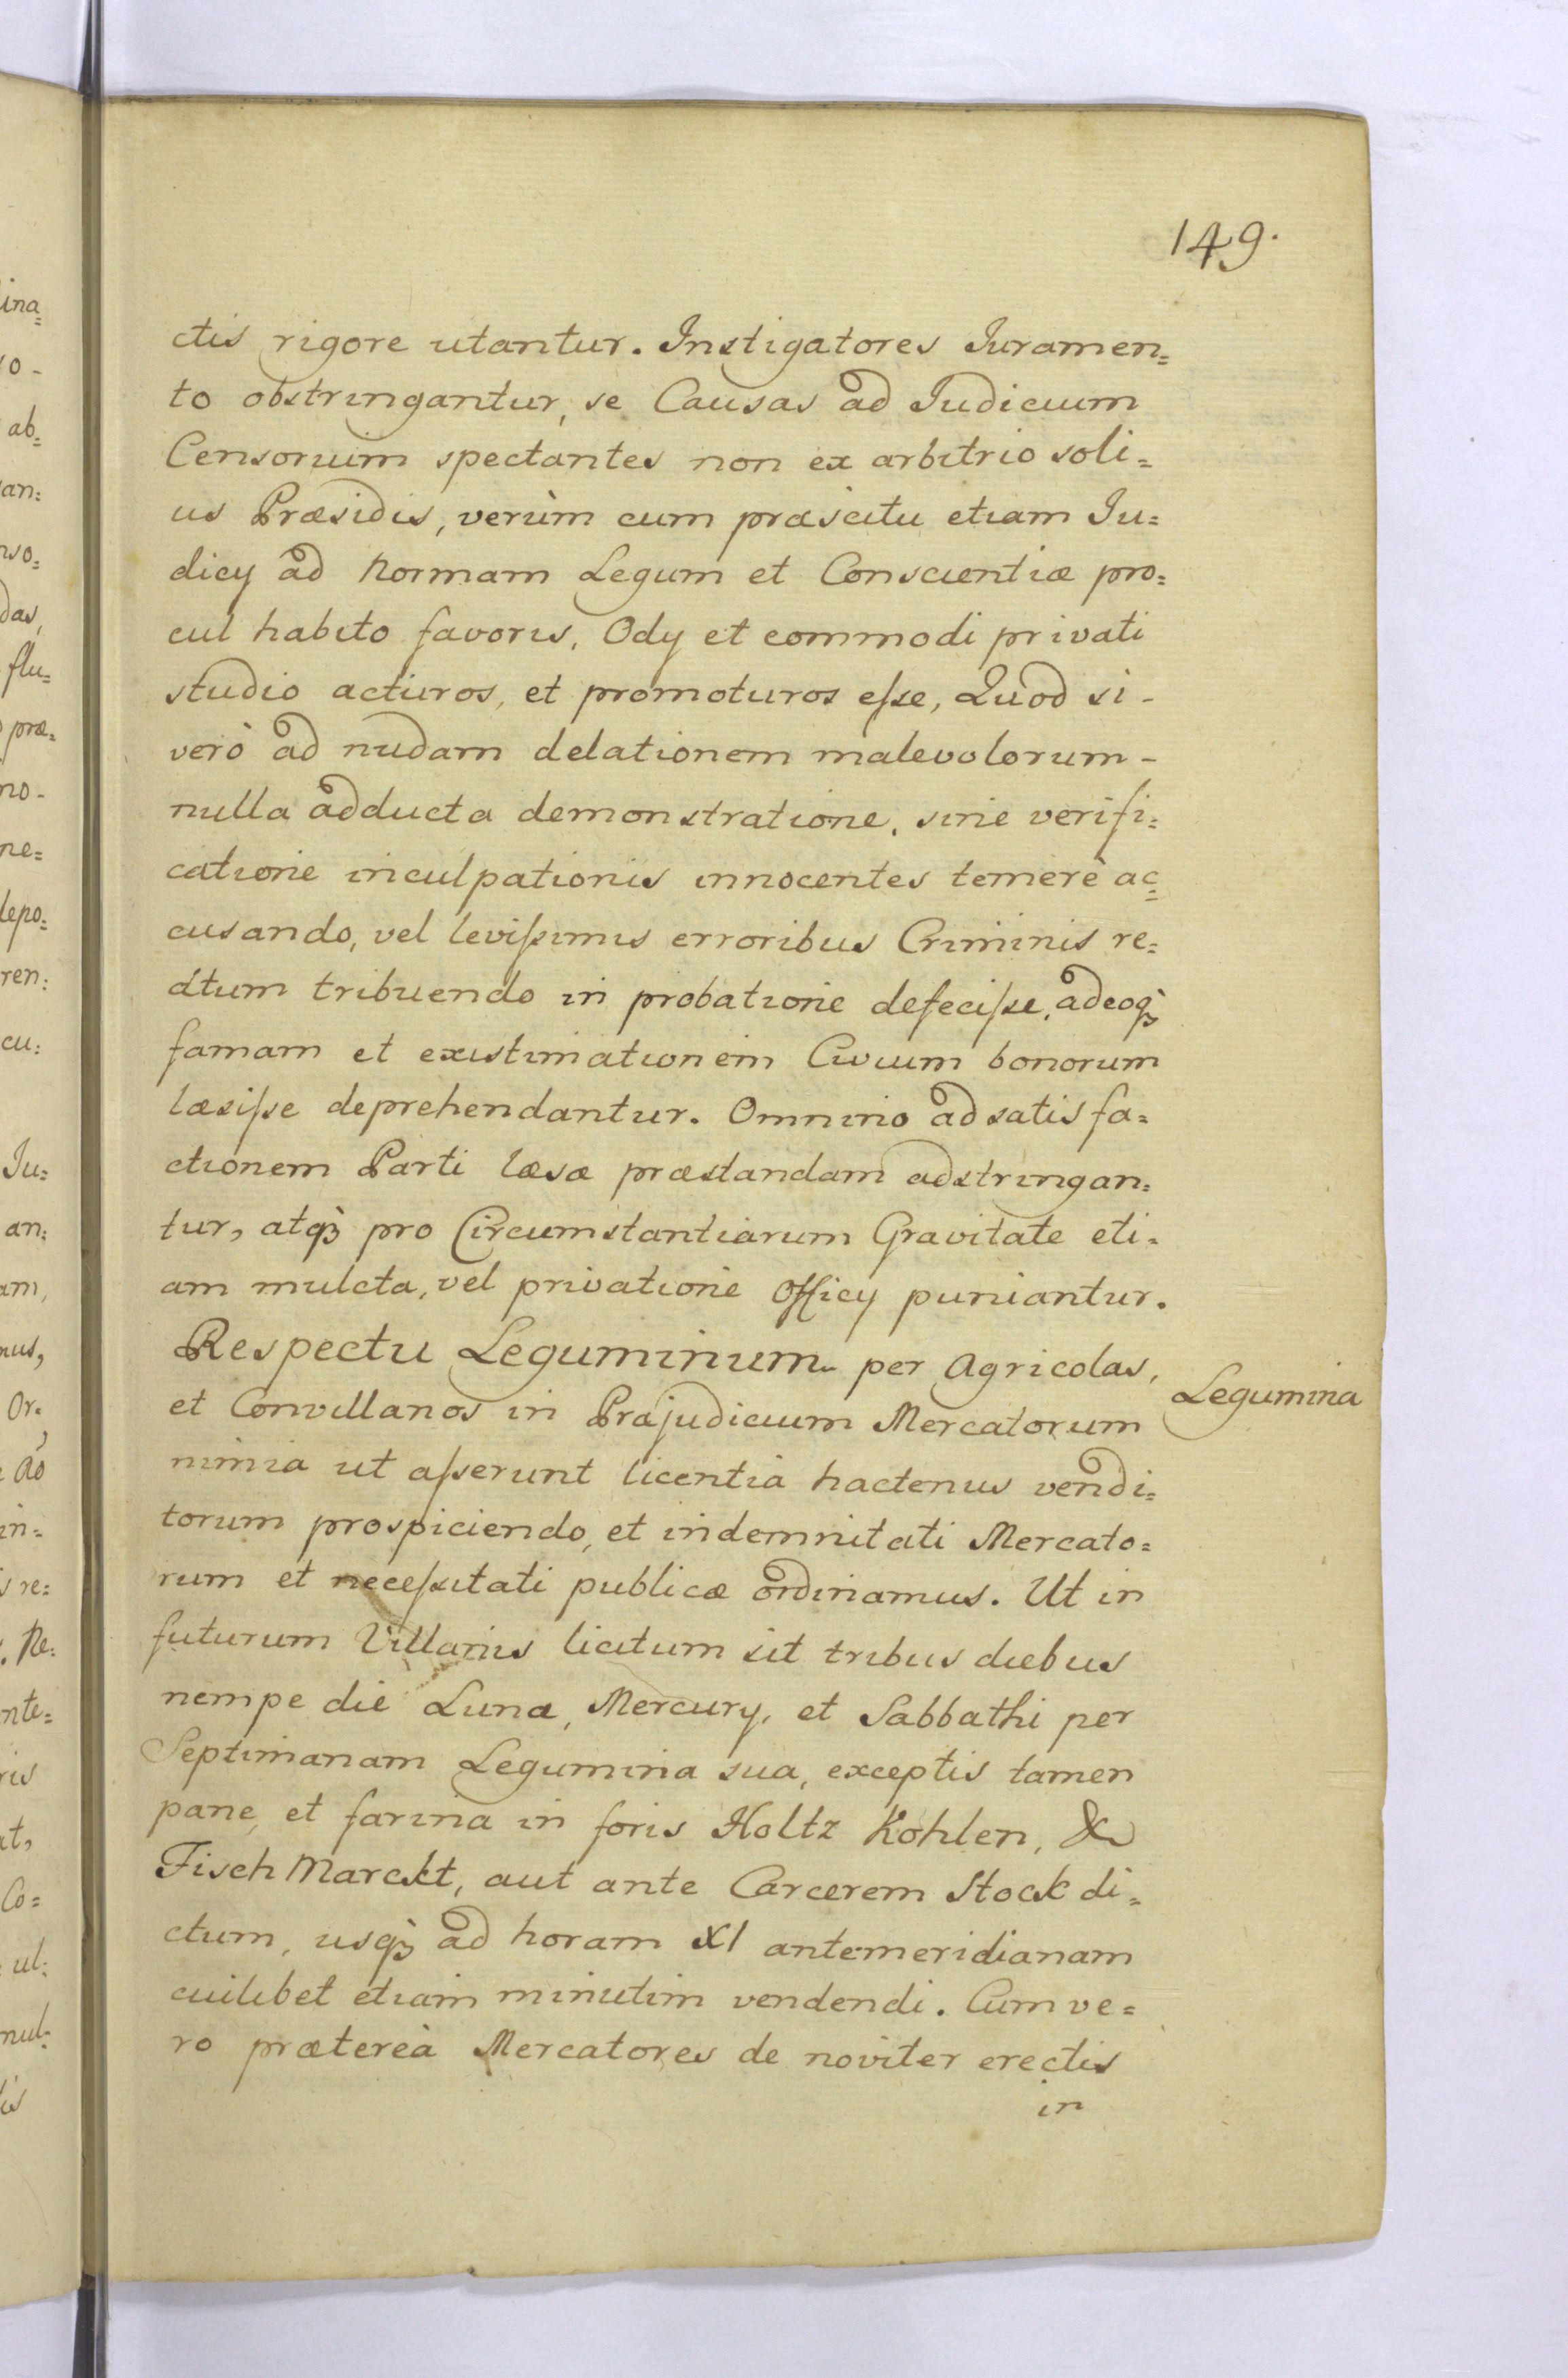 149.
ctis rigore utantur. Instigatores Juramen=
to obstringantur, se Causas ad Judicium
Censorium spectantes non ex arbitrio soli=
us Præsidis, verùm cum præscitu etiam Ju=
dicÿ ad Normam Legum et Conscientiæ pro=
cul habito favoris, Odÿ et commodi privati
studio acturos, et promoturos eſse, Quod si -
verò ad nudam delationem malevolorum -
nulla adducta demonstratione, sine verifi=
catione inculpationis innocentes temerè ac=
cusando, vel leviſsimis erroribus Criminis re=
atum tribuendo in probatione defeciſse, adeoqꝫ
famam et existimationem Civium bonorum
læsiſse deprehendantur. Omnino ad satisfa=
ctionem Parti læsæ præstandam adstringan=
tur, atqꝫ pro Circumstantiarum Gravitate eti=
am mulcta, vel privatione Officÿ puniantur.
Respectu Leguminum per Agricolas,
Legumina
et Convillanos in Præjudicium Mercatorum
nimia ut aſserunt licentia hactenus vendi=
torum prospiciendo, et indemnitati Mercato=
rum et neceſsitati publicæ ordinamus. Ut in
futurum Villanis licitum sit tribus diebus
nempe die Lunæ, Mercurÿ, et Sabbathi per
Septimanam Legumina sua, exceptis tamen
pane, et farina in foris Holtz Kohlen, &
Fisch Marckt, aut ante Carcerem Stock di=
ctum, usqꝫ ad horam XI antemeridianam
cuilibet etiam minutim vendendi. Cum ve=
ro prætereà Mercatores de noviter erectis
in